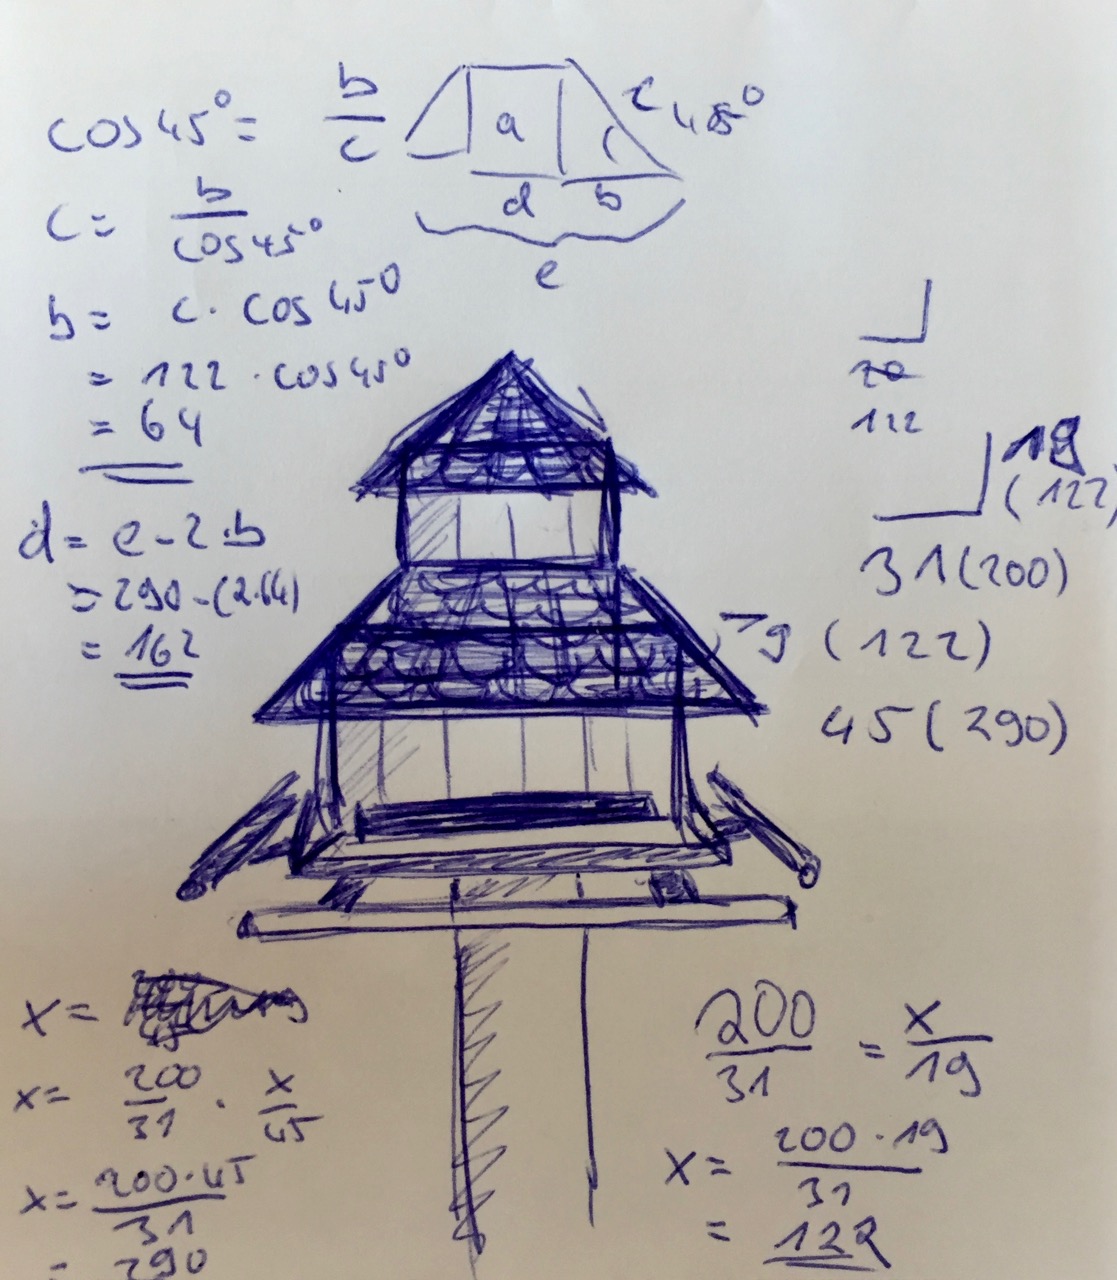 cos 45° = b/c
c 45°
a
d b
e
c = b/cos 45°
b = c · cos 45°
= 122 · cos 45°
= 64
d = e - 2·b
= 290 - (2·64)
= 162
20
122
19
(122)
31 (200)
9 (122)
45 (290)
x =
x = 200/31 · x/45
x = 200·45/31
= 290
200/31 = x/19
x = 200·19/31
= 122